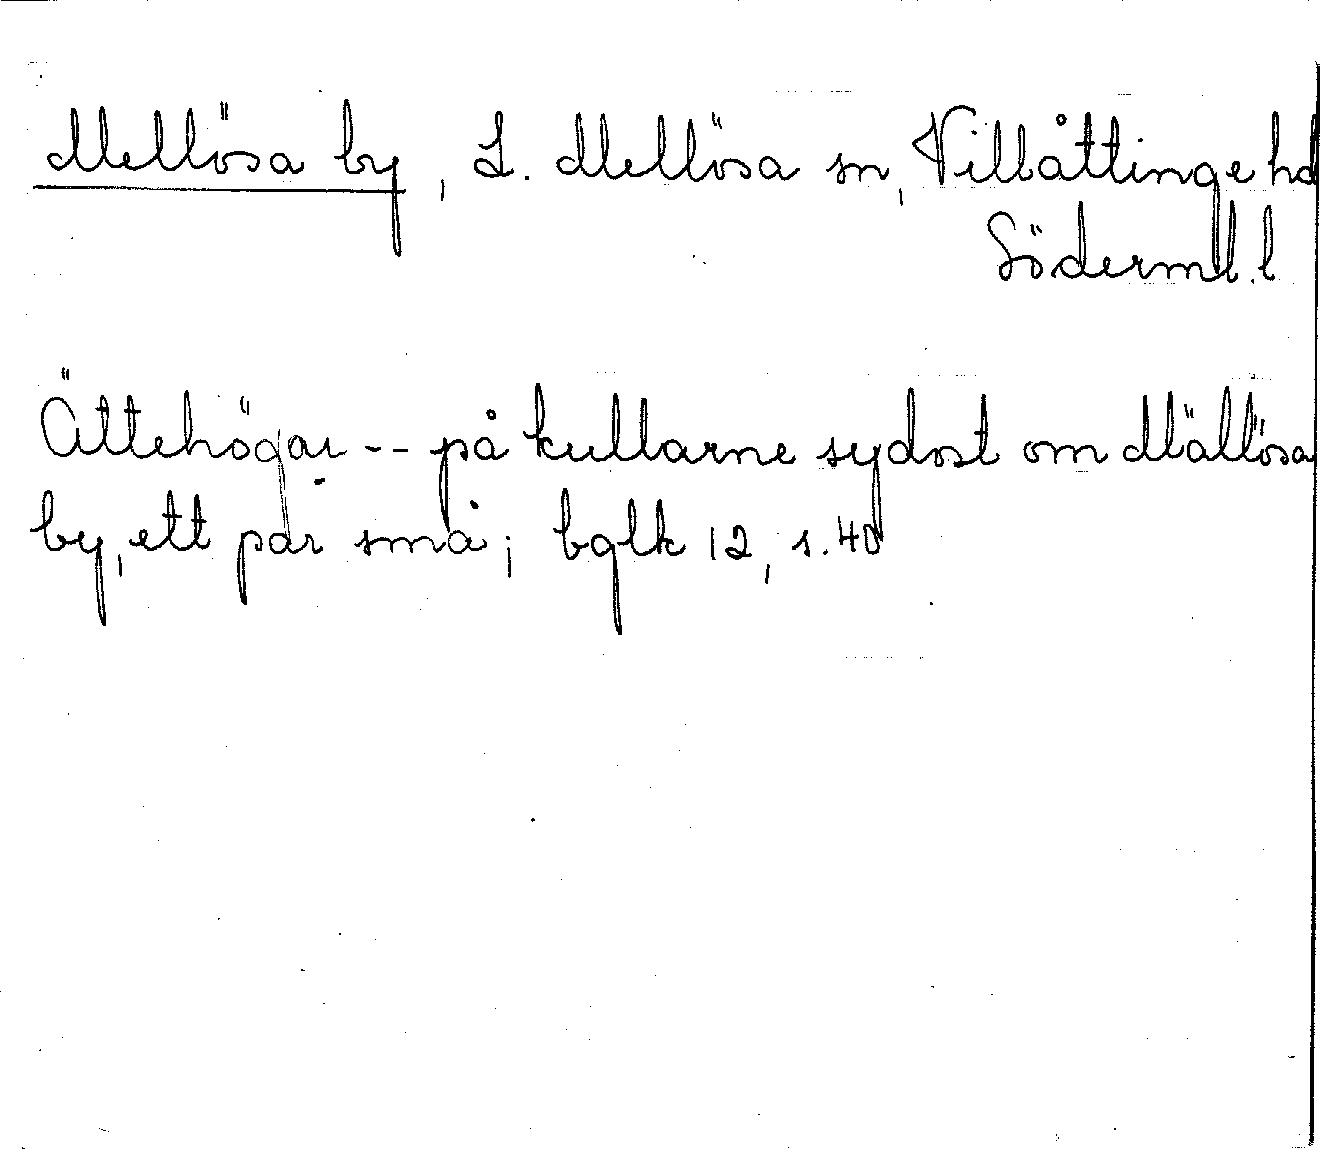 Mellösa by, L. Mellösa sn, Villåttinge hd
Söderml. l
Ättehögar -- på kullarne sydost om Mällösa
by, ett par små; bglk 12, s. 40